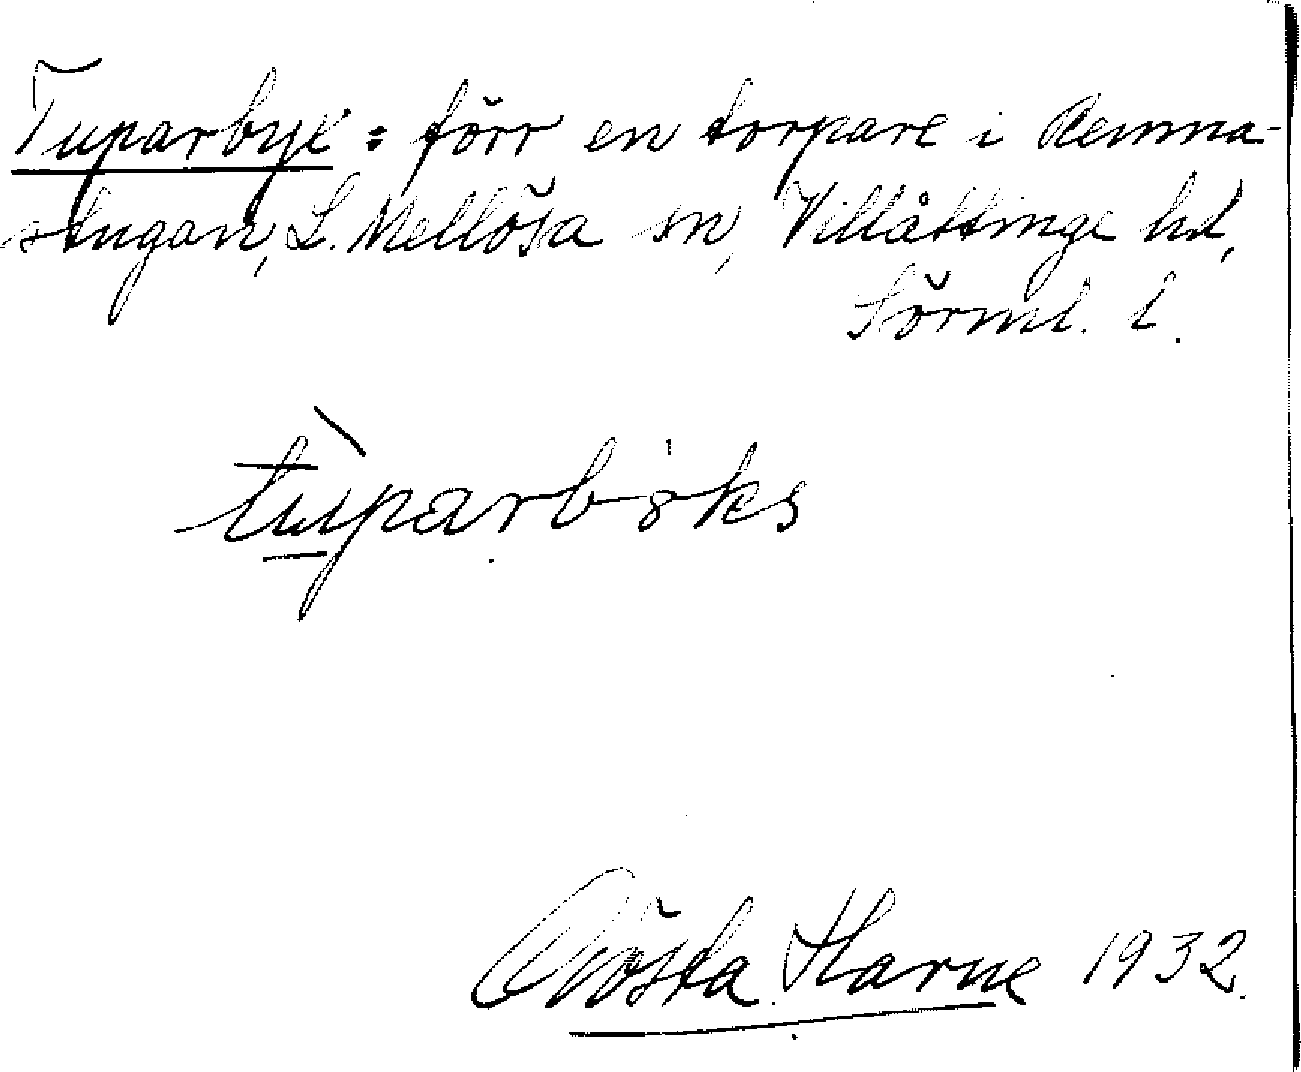 Tuparbyk = förr en torpare i Remna-
stugan, L. Mellösa sn, Villåttinge hd,
Sörml. l.
tuparböks
Gösta Harne 1932.